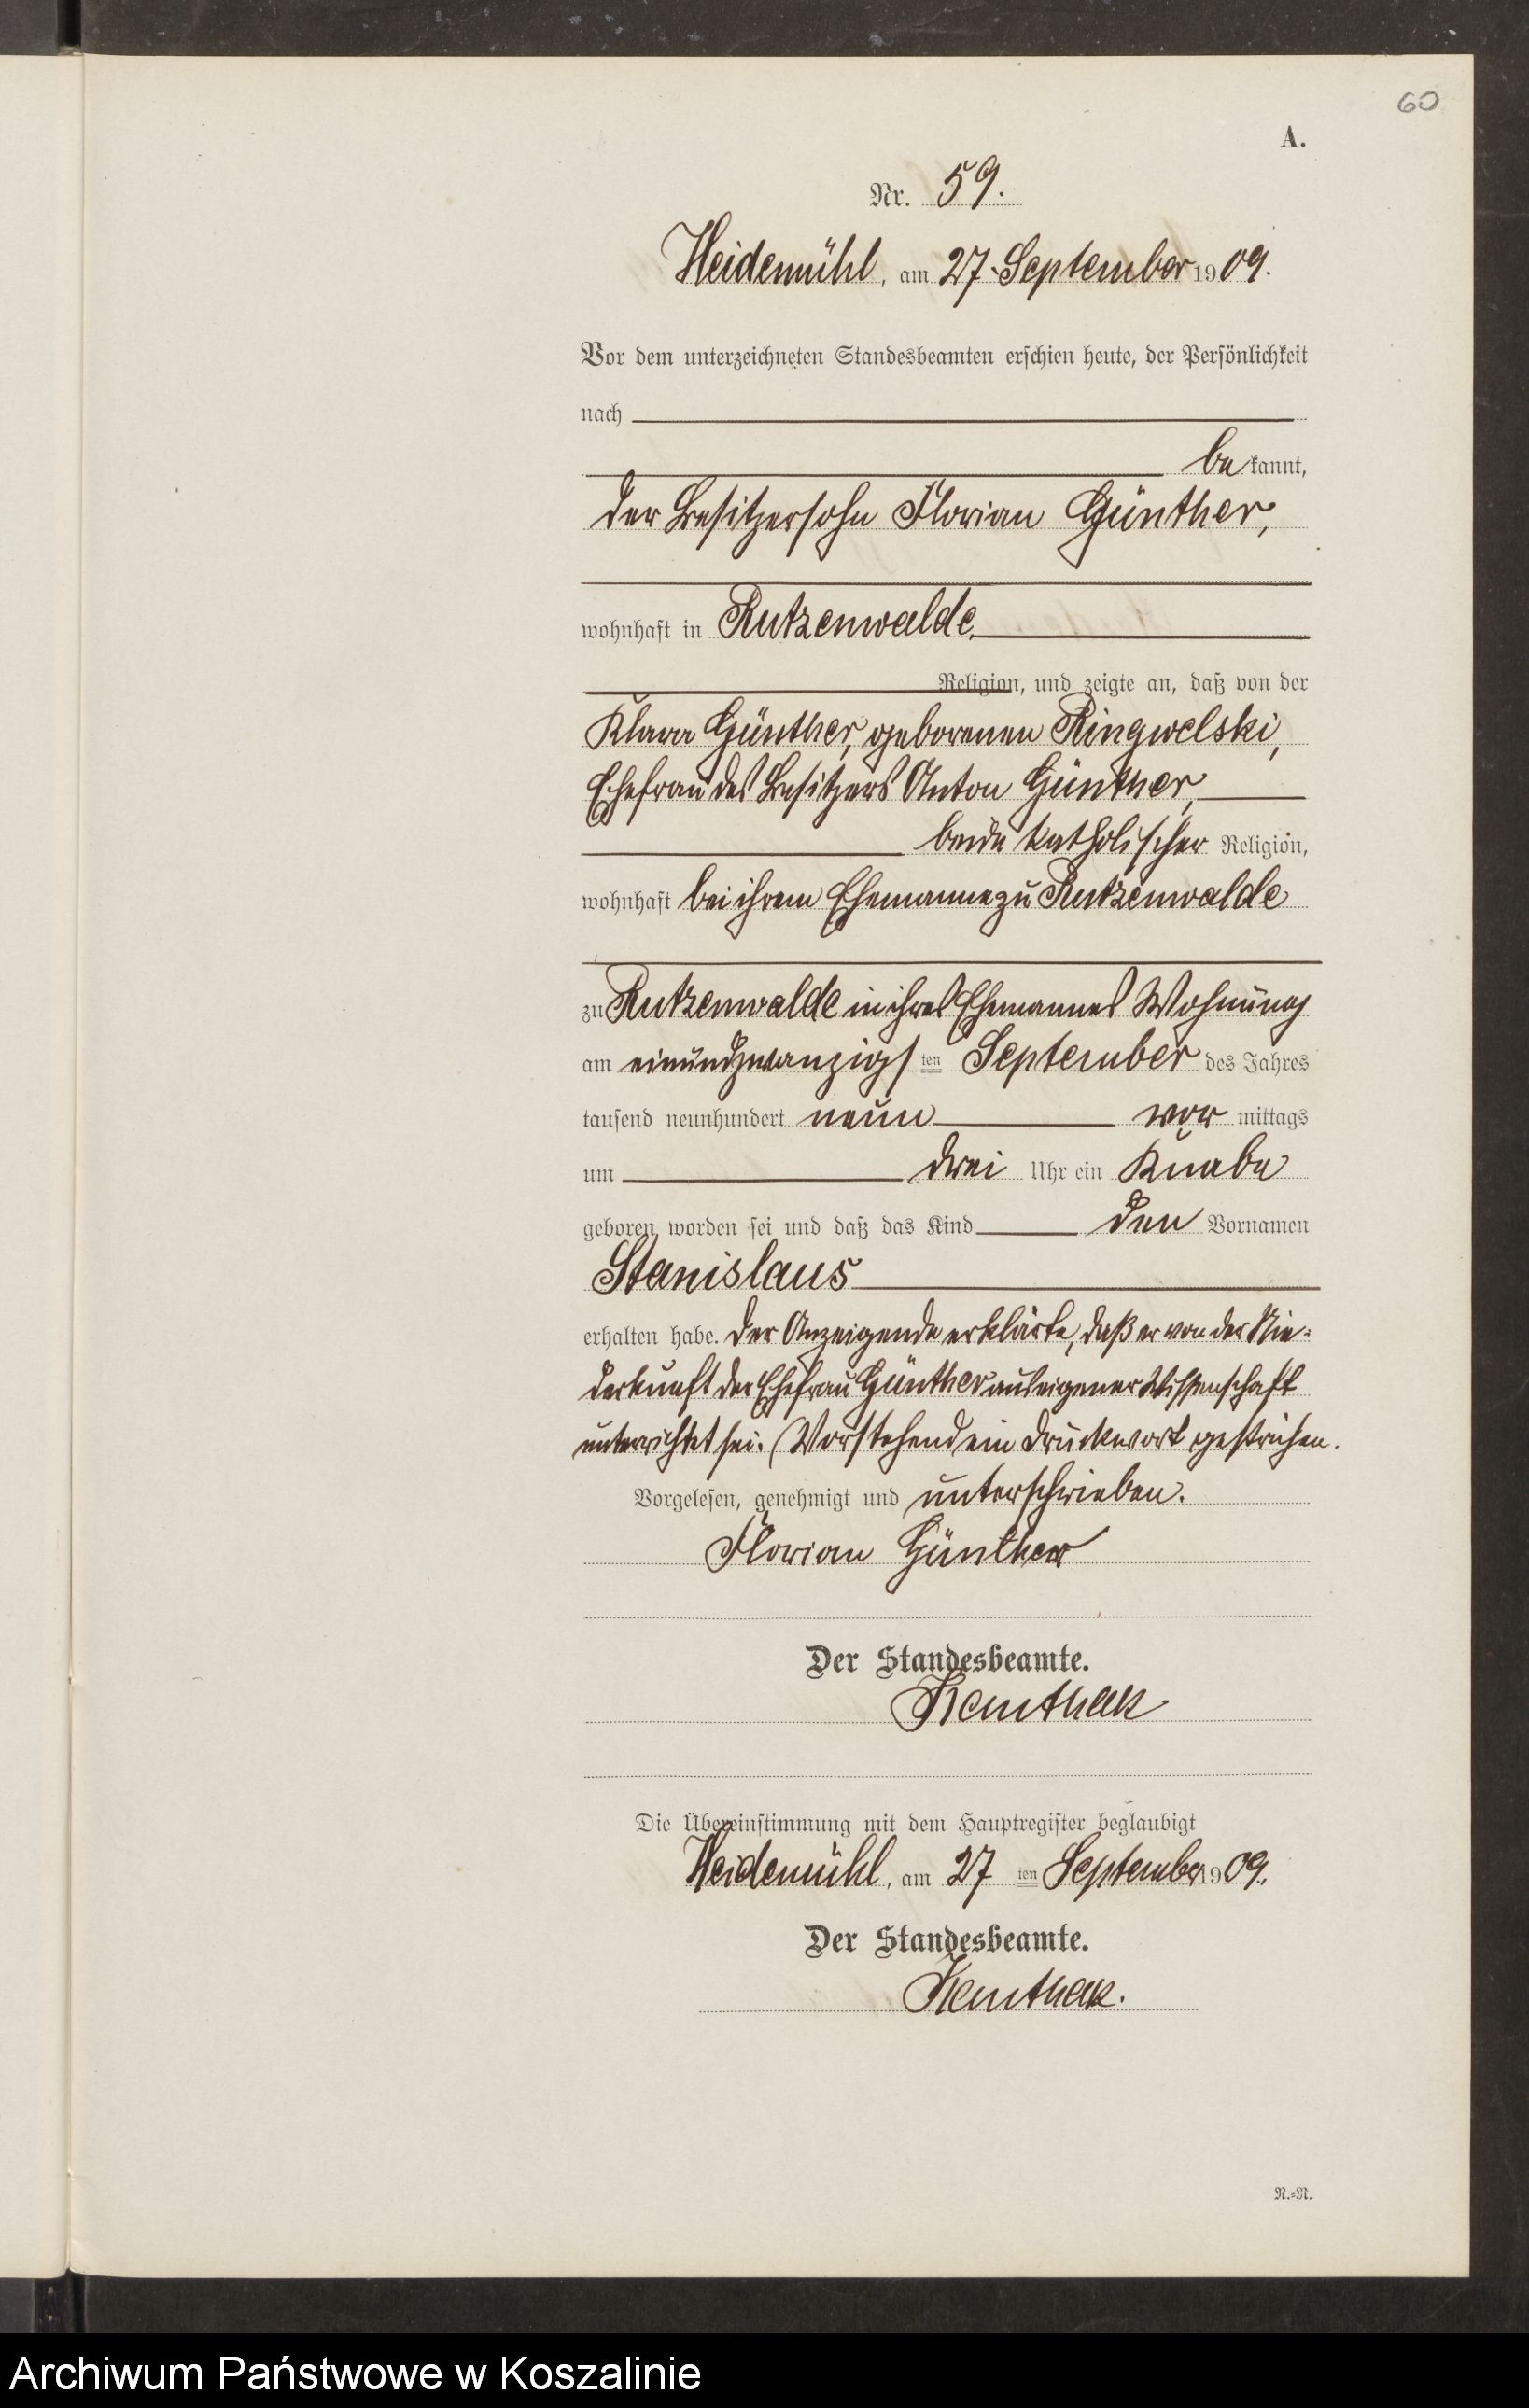 60
A.
Nr. 59.
Heidemühl, am 27. September 1909.
Vor dem unterzeichneten Standesbeamten erschien heute, der Persönlichkeit
nach
be kannt,
der Besitzersohn Florian Günther,
wohnhaft in Rutzenwalde
Religion, und zeigte an, daß von der
Klara Günther, geborenen Ringwelski,
Ehefrau des Besitzers Anton Günther,
beide katholischer Religion,
wohnhaft bei ihrem Ehemanne zu Rutzenwalde
zu Rutzenwalde in ihres Ehemannes Wohnung
am einundzwanzigsten September des Jahres
tausend neunhundert neun vor mittags
um drei Uhr ein Knabe
geboren worden sei und daß das Kind den Vornamen
Stanislaus
erhalten habe. Der Anzeigende erklärte, daß er von der Nie-
derkunft der Ehefrau Günther aus eigener Wissenschaft
unterrichtet sei. (Vorstehend ein Druckwort gestrichen.
Vorgelesen, genehmigt und unterschrieben.
Florian Günther
Der Standesbeamte.
Die Übereinstimmung mit dem Hauptregister beglaubigt
Heidemühl, am 27 ten September 1909.
Der Standesbeamte.
N.=N.
Archiwum Państwowe w Koszalinie